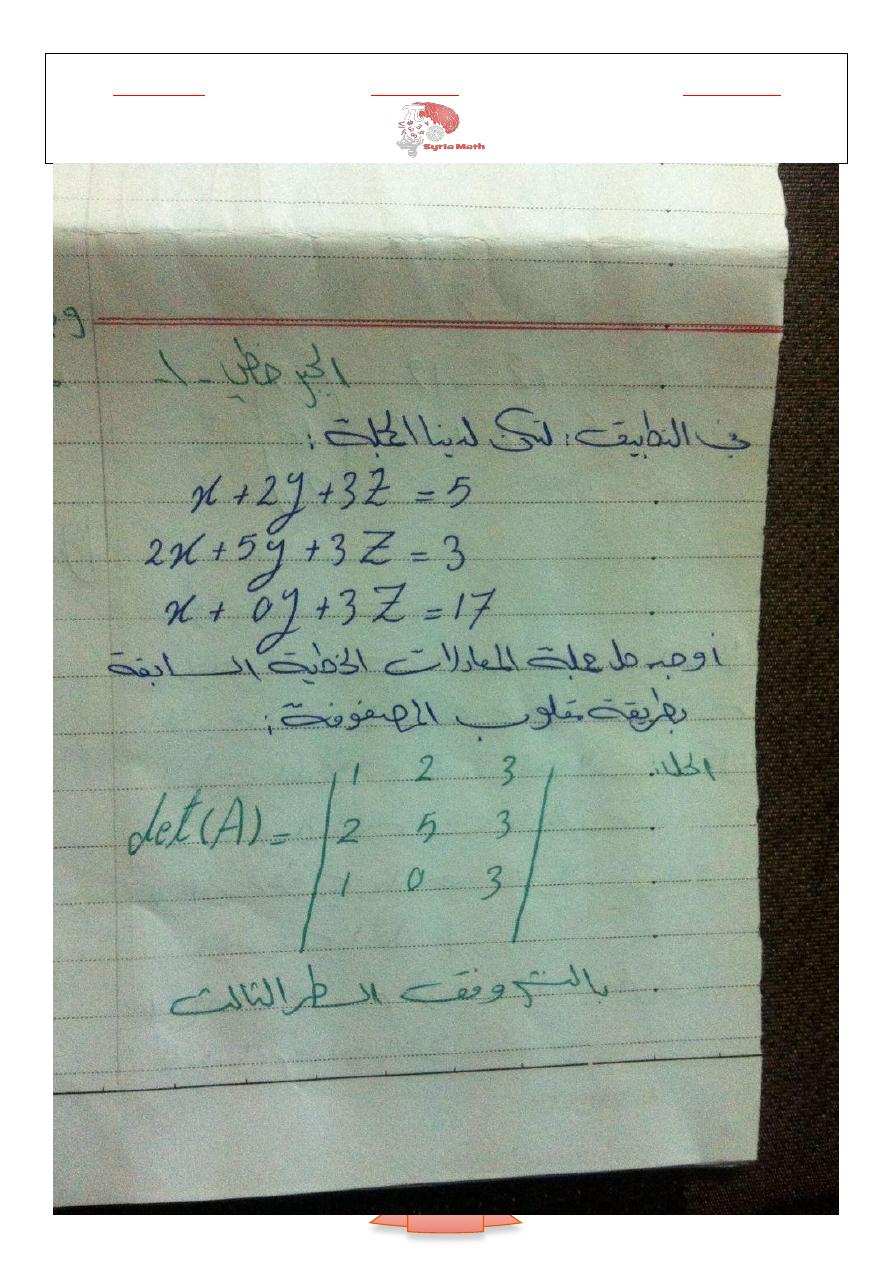 Syria Math
الجبر خطي -1-
في التطبيق: لتكن لدينا الجملة:
x + 2y + 3Z = 5
2x + 5y + 3Z = 3
x + 0y + 3Z = 17
أوجد حل جملة المعادلات الخطية السابقة
بطريقة مقلوب المصفوفة:
الحل:
det(A) = | 1 2 3 |
2 5 3
1 0 3
بالنشر وفق السطر الثالث